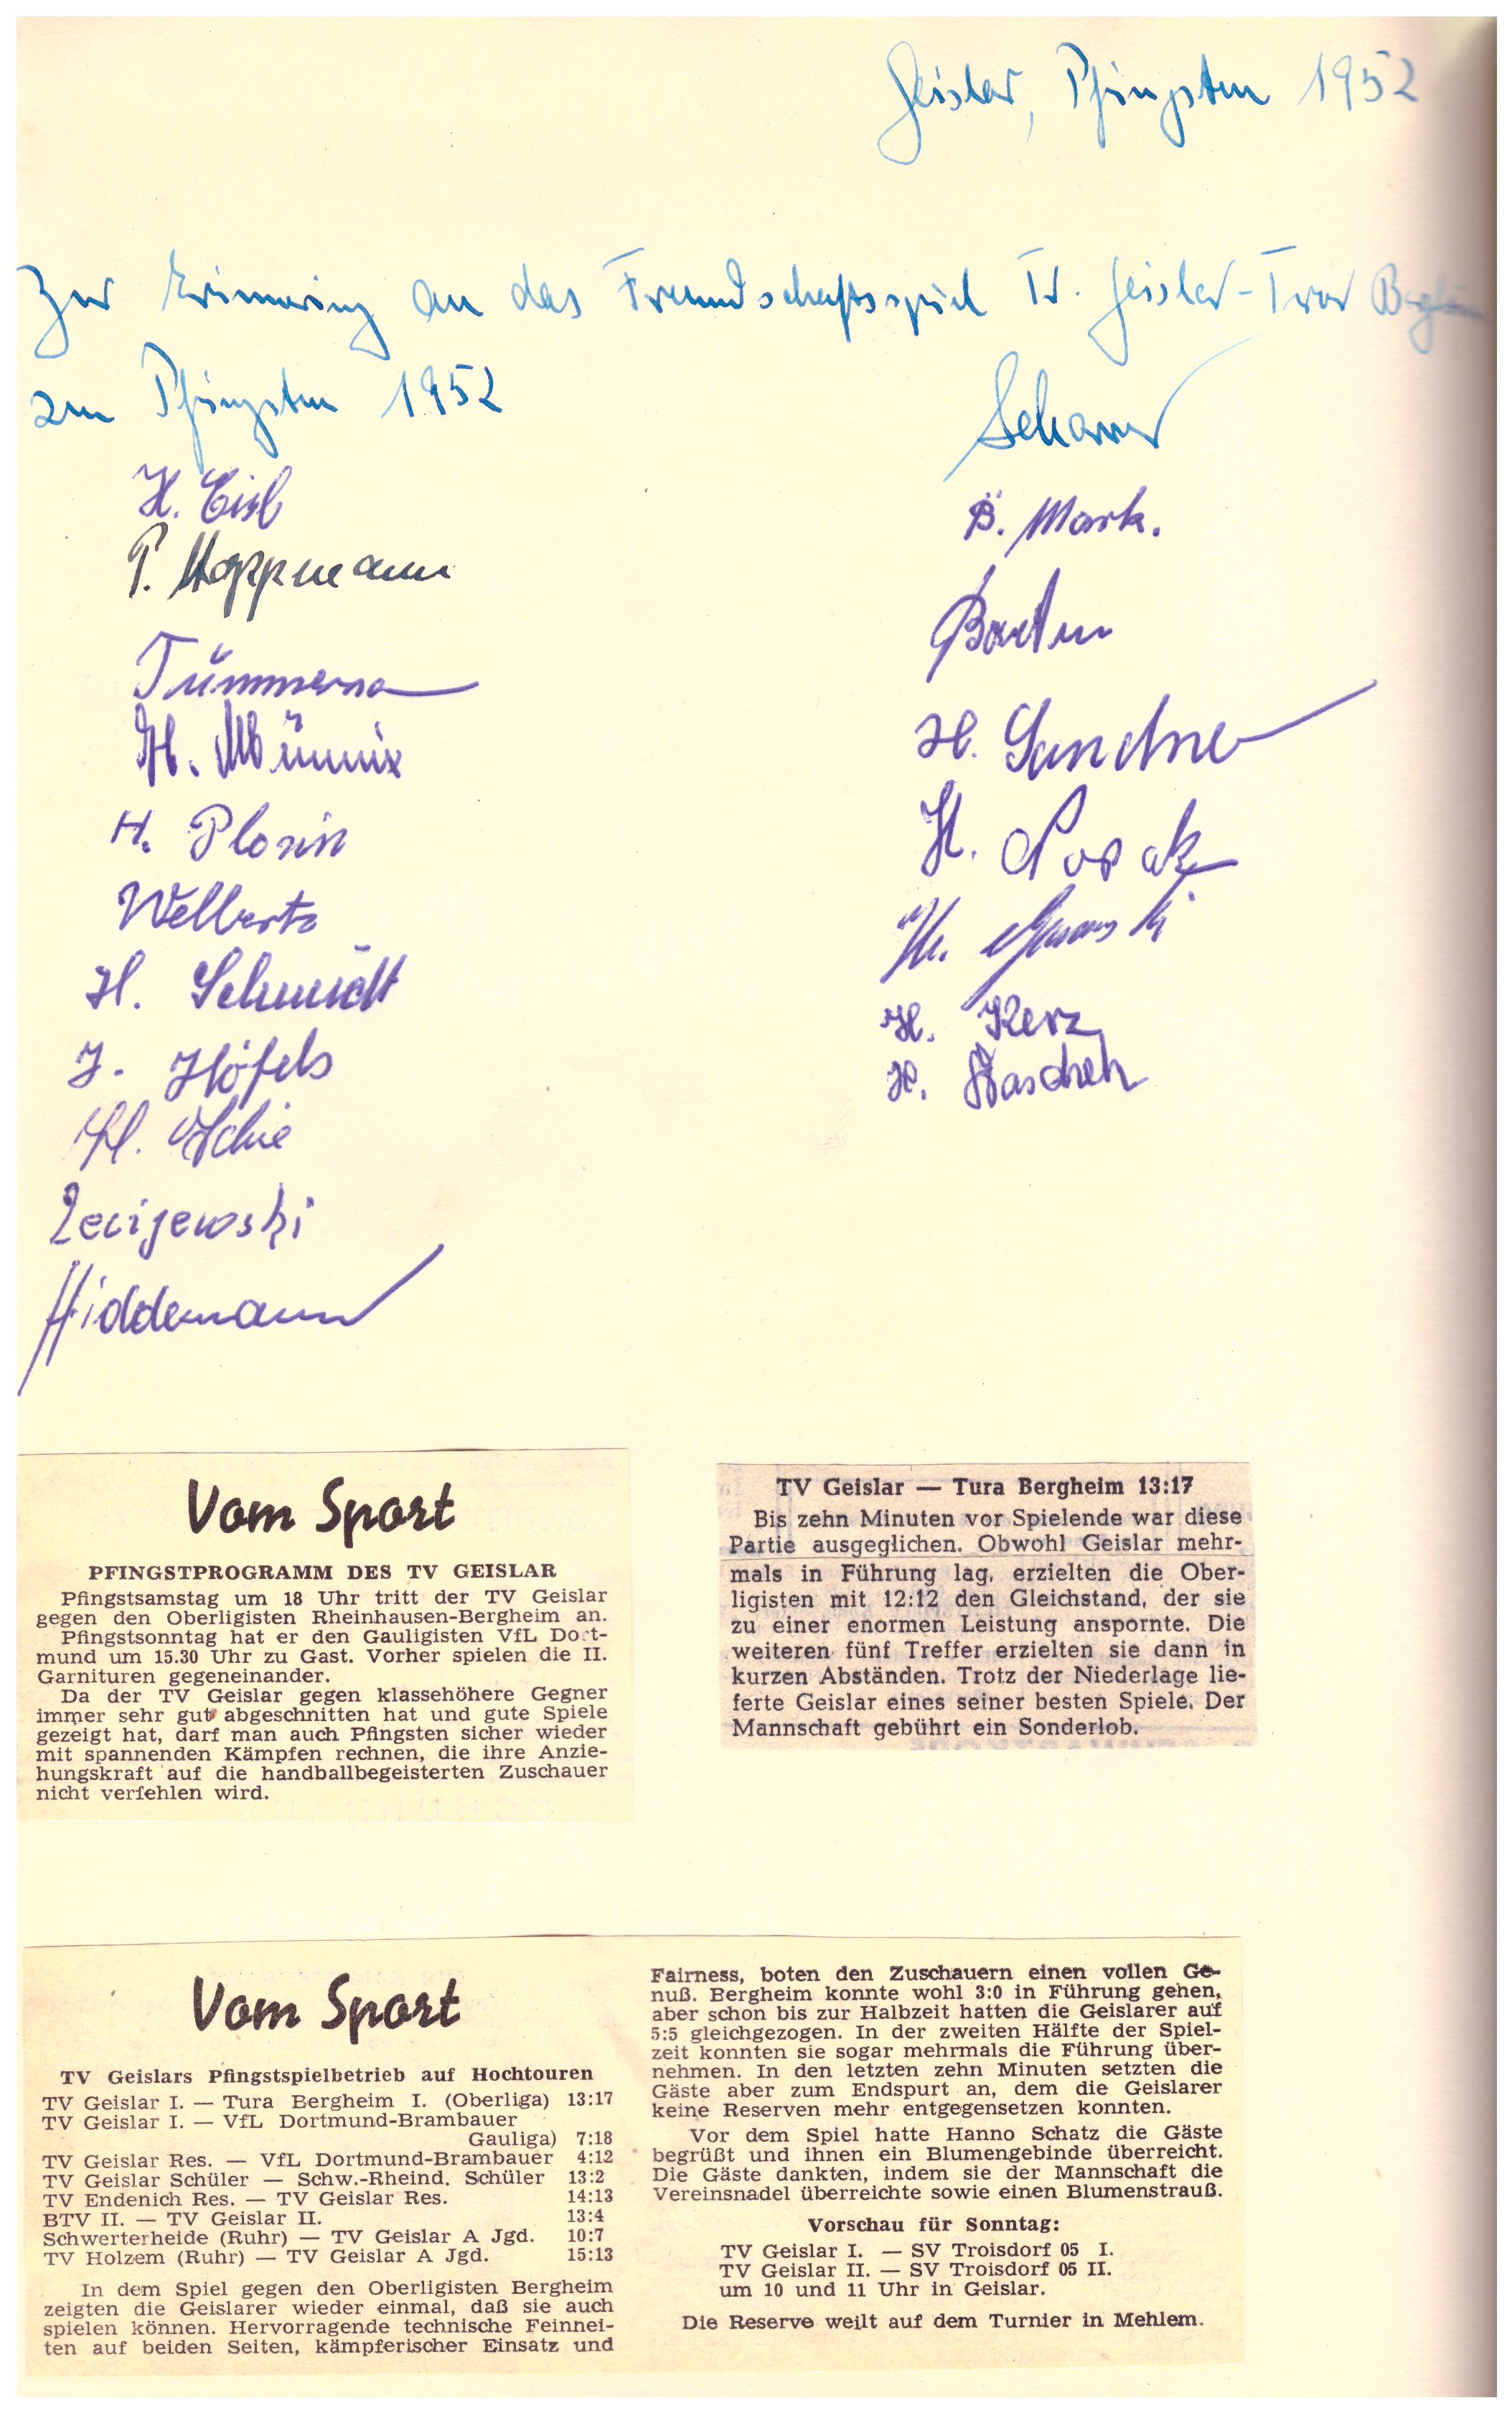 Geislar, Pfingsten 1952
Zur Erinnerung an das Freundschaftsspiel Tv. Geislar - Tura
zu Pfingsten 1952
H. Eisl
P. Hoppmann
H. Münnix
H. Plonin
Welberts
H. Schmidt
J. Höfels
H. Schie
Zecijewski
Hiddemann
B. Mark.
H. Sandner
H. Posak
H. Kerz
Vom Sport
PFINGSTPROGRAMM DES TV GEISLAR
Pfingstsamstag um 18 Uhr tritt der TV Geislar
gegen den Oberligisten Rheinhausen-Bergheim an.
Pfingstsonntag hat er den Gauligisten VfL Dort-
mund um 15.30 Uhr zu Gast. Vorher spielen die II.
Garnituren gegeneinander.
Da der TV Geislar gegen klassehöhere Gegner
immer sehr gut abgeschnitten hat und gute Spiele
gezeigt hat, darf man auch Pfingsten sicher wieder
mit spannenden Kämpfen rechnen, die ihre Anzie-
hungskraft auf die handballbegeisterten Zuschauer
nicht verfehlen wird.
TV Geislar — Tura Bergheim 13:17
Bis zehn Minuten vor Spielende war diese
Partie ausgeglichen. Obwohl Geislar mehr-
mals in Führung lag, erzielten die Ober-
ligisten mit 12:12 den Gleichstand, der sie
zu einer enormen Leistung anspornte. Die
weiteren fünf Treffer erzielten sie dann in
kurzen Abständen. Trotz der Niederlage lie-
ferte Geislar eines seiner besten Spiele. Der
Mannschaft gebührt ein Sonderlob.
Vom Sport
TV Geislars Pfingstspielbetrieb auf Hochtouren
TV Geislar I. — Tura Bergheim I. (Oberliga) 13:17
TV Geislar I. — VfL Dortmund-Brambauer
Gauliga) 7:18
TV Geislar Res. — VfL Dortmund-Brambauer 4:12
TV Geislar Schüler — Schw.-Rheind. Schüler 13:2
TV Endenich Res. — TV Geislar Res. 14:13
BTV II. — TV Geislar II. 13:4
Schwerterheide (Ruhr) — TV Geislar A Jgd. 10:7
TV Holzem (Ruhr) — TV Geislar A Jgd. 15:13
In dem Spiel gegen den Oberligisten Bergheim
zeigten die Geislarer wieder einmal, daß sie auch
spielen können. Hervorragende technische Feinhei-
ten auf beiden Seiten, kämpferischer Einsatz und
Fairness, boten den Zuschauern einen vollen Ge-
nuß. Bergheim konnte wohl 3:0 in Führung gehen,
aber schon bis zur Halbzeit hatten die Geislarer auf
5:5 gleichgezogen. In der zweiten Hälfte der Spiel-
zeit konnten sie sogar mehrmals die Führung über-
nehmen. In den letzten zehn Minuten setzten die
Gäste aber zum Endspurt an, dem die Geislarer
keine Reserven mehr entgegensetzen konnten.
Vor dem Spiel hatte Hanno Schatz die Gäste
begrüßt und ihnen ein Blumengebinde überreicht.
Die Gäste dankten, indem sie der Mannschaft die
Vereinsnadel überreichte sowie einen Blumenstrauß.
Vorschau für Sonntag:
TV Geislar I. — SV Troisdorf 05 I.
TV Geislar II. — SV Troisdorf 05 II.
um 10 und 11 Uhr in Geislar.
Die Reserve weilt auf dem Turnier in Mehlem.